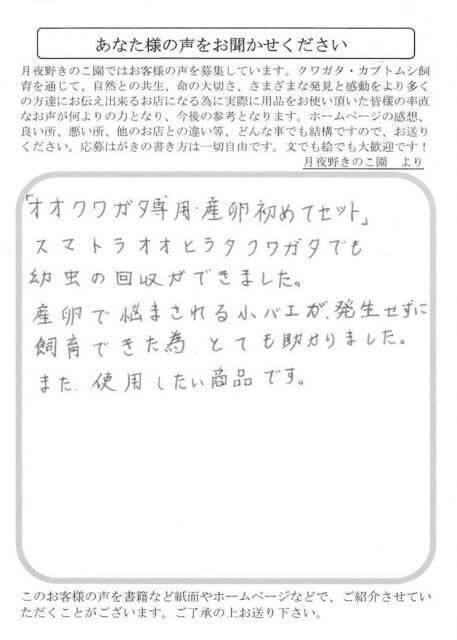 あなた様の声をお聞かせください
月夜野きのこ園ではお客様の声を募集しています。クワガタ・カブトムシ飼
育を通じて、自然との共生、命の大切さ、さまざまな発見と感動をより多く
の方達にお伝え出来るお店になる為に実際に用品をお使い頂いた皆様の率直
なお声が何よりの力となり、今後の参考となります。ホームページの感想、
良い所、悪い所、他のお店との違い等、どんな事でも結構ですので、お送り
ください。応募はがきの書き方は一切自由です。文でも絵でも大歓迎です！
月夜野きのこ園　より
「オオクワガタ専用・産卵初めてセット」
スマトラオオヒラタクワガタでも
幼虫の回収ができました。
産卵で悩まされる小バエが、発生せずに
飼育できた為 とても助かりました。
また 使用したい商品です。
このお客様の声を書籍など紙面やホームページなどで、ご紹介させてい
ただくことがございます。ご了承の上お送り下さい。